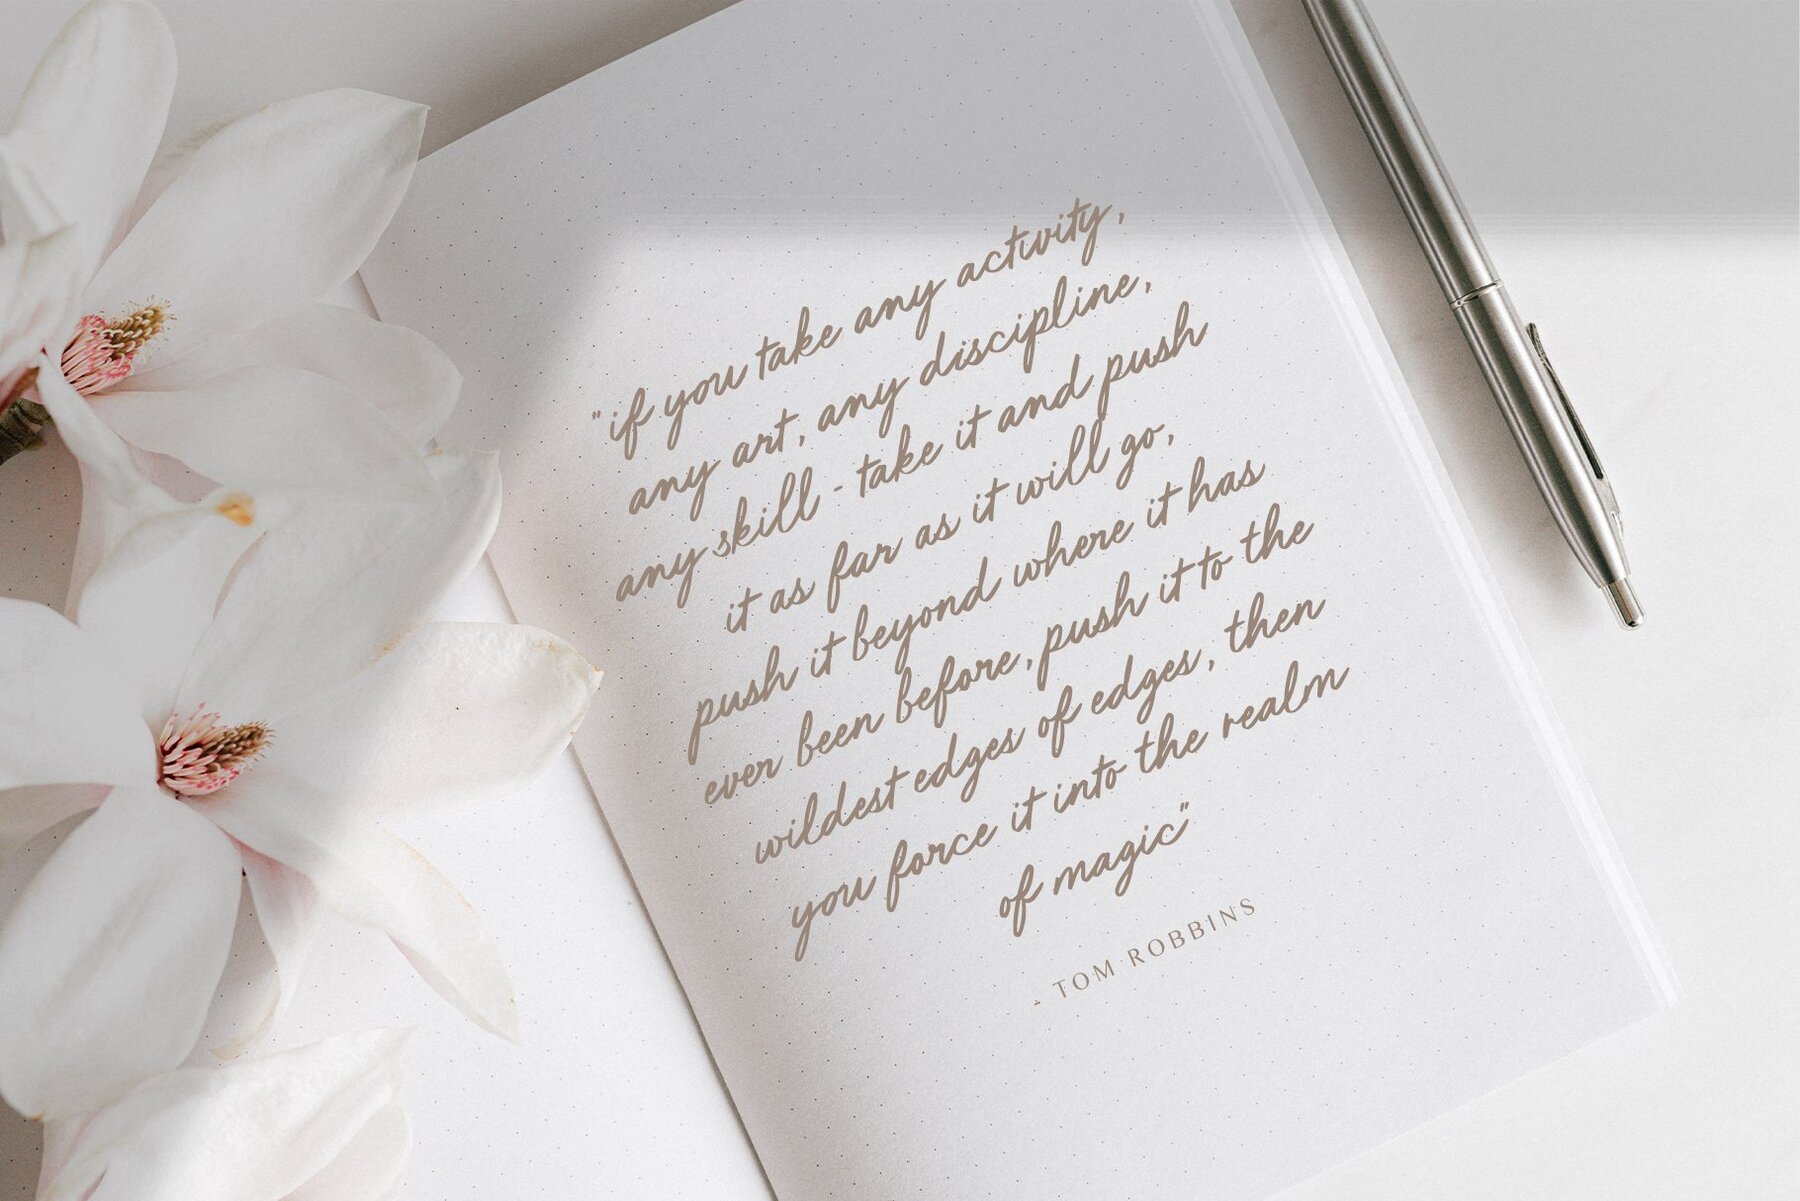 "if you take any activity,
any art, any discipline,
any skill - take it and push
it as far as it will go,
push it beyond where it has
ever been before, push it to the
wildest edges of edges, then
you force it into the realm
of magic"
- TOM ROBBINS